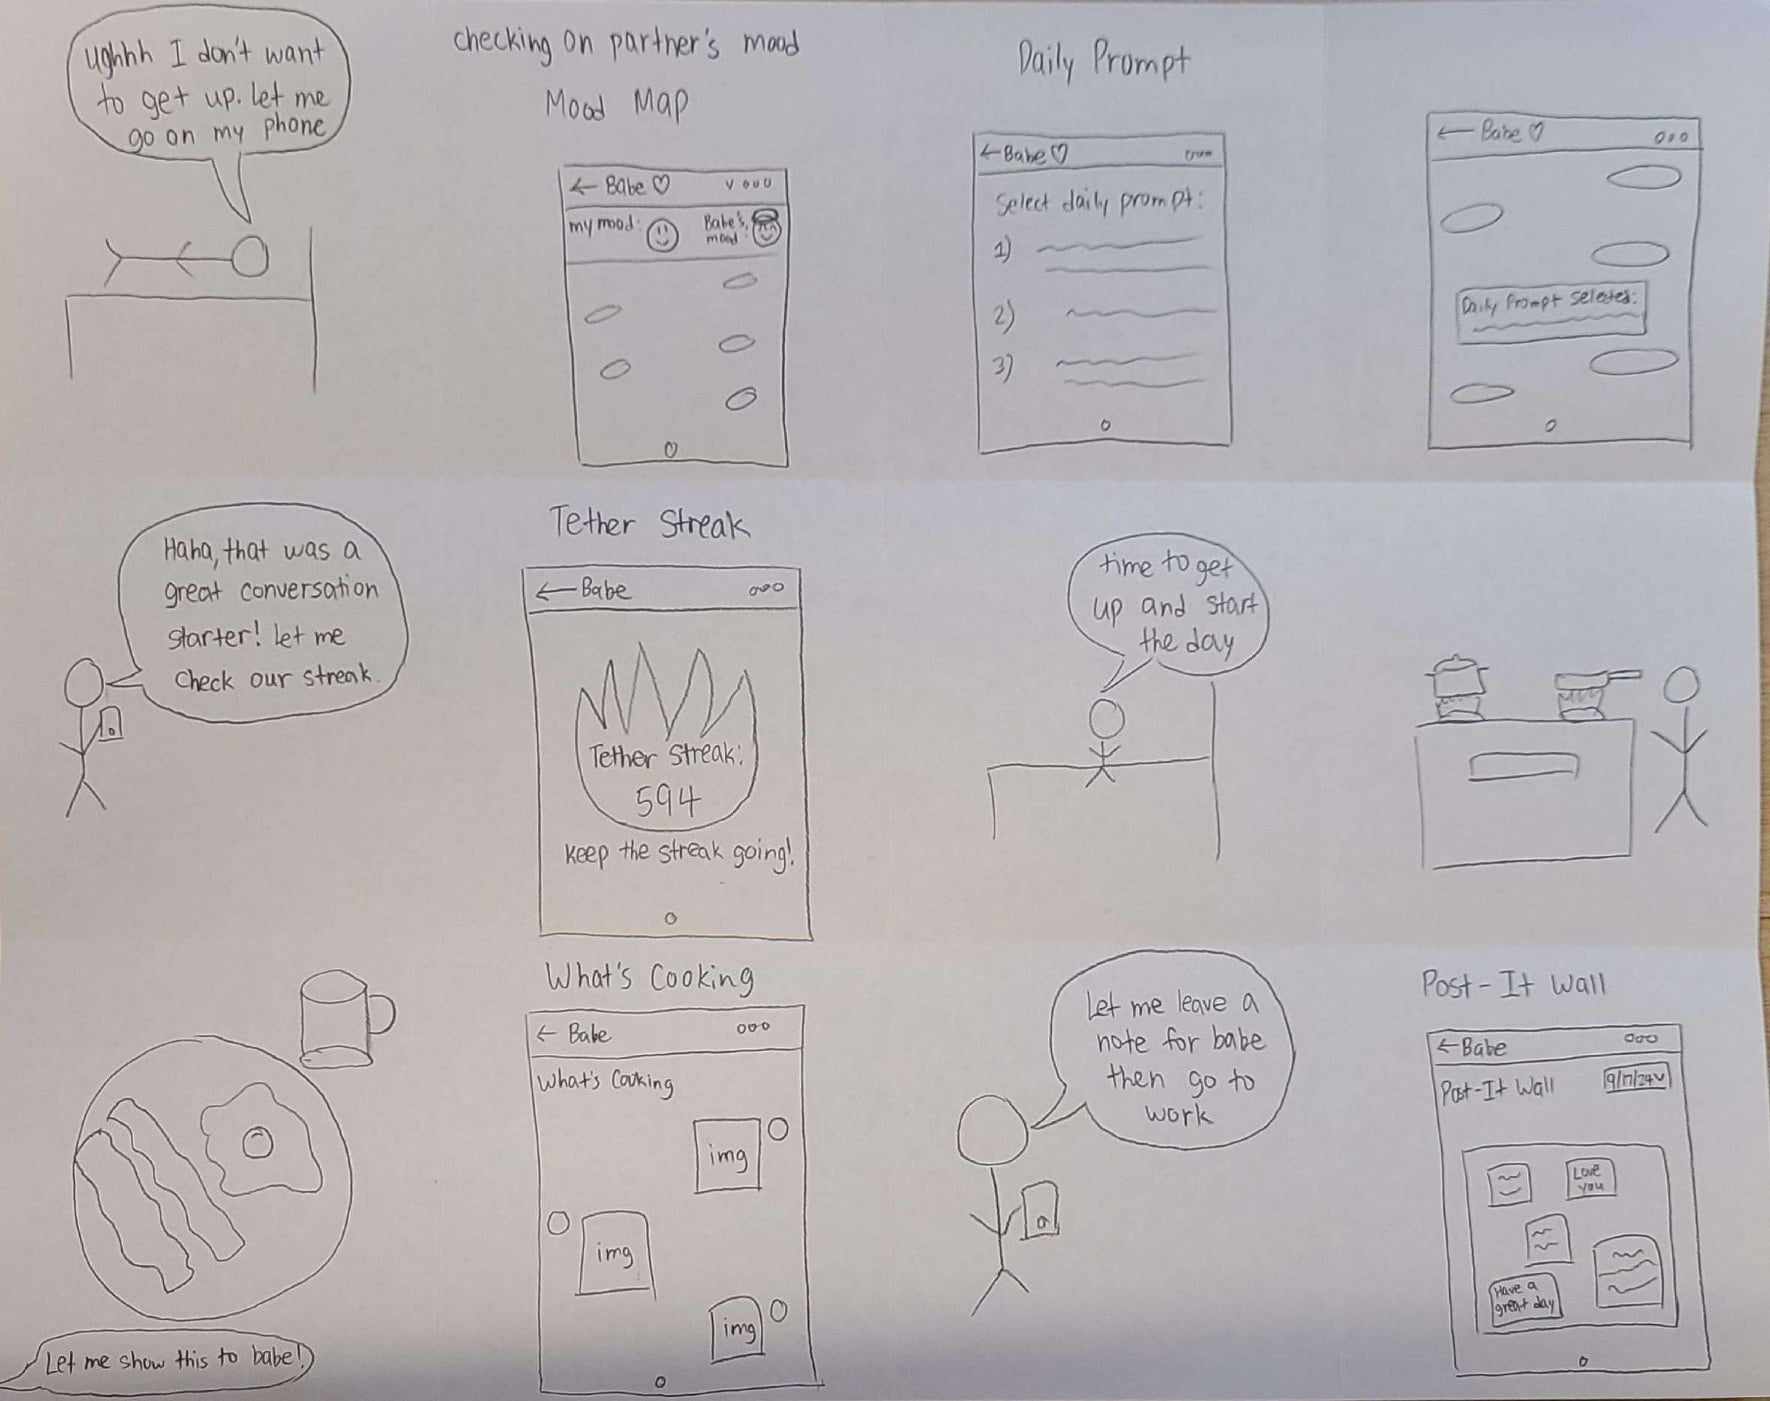 ughhh I don't want
to get up. Let me
go on my phone
checking on partner's mood
Mood Map
← Babe ♡
my mood:
Babe's
mood:
Daily Prompt
← Babe ♡
Select daily prompt:
1)
2)
3)
← Babe ♡
Daily Prompt
Haha, that was a
great conversation
starter! Let me
check our streak.
Tether Streak
← Babe
Tether Streak:
594
Keep the streak going!
time to get
up and start
the day
Let me show this to babe!
What's Cooking
← Babe
What's Cooking
img
img
img
Let me leave a
note for babe
then go to
work
Post-It Wall
← Babe
Post-It Wall
9/17/24
Love
you
Have a
great day